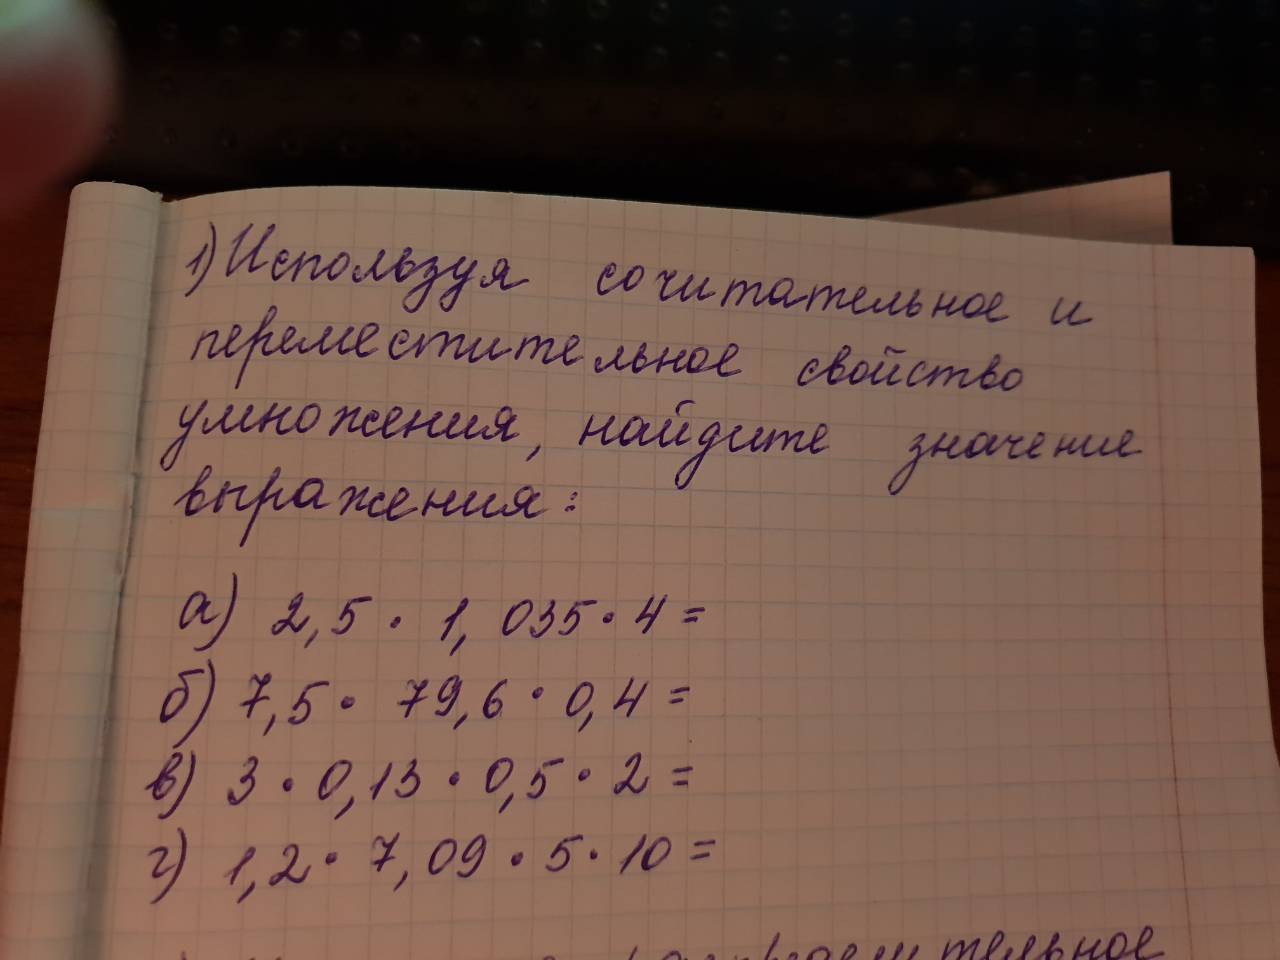 1) Используя сочитательное и
переместительное свойство
умножения, найдите значение
выражения:
а) 2,5 · 1,035 · 4 =
б) 7,5 · 79,6 · 0,4 =
в) 3 · 0,13 · 0,5 · 2 =
г) 1,2 · 7,09 · 5 · 10 =